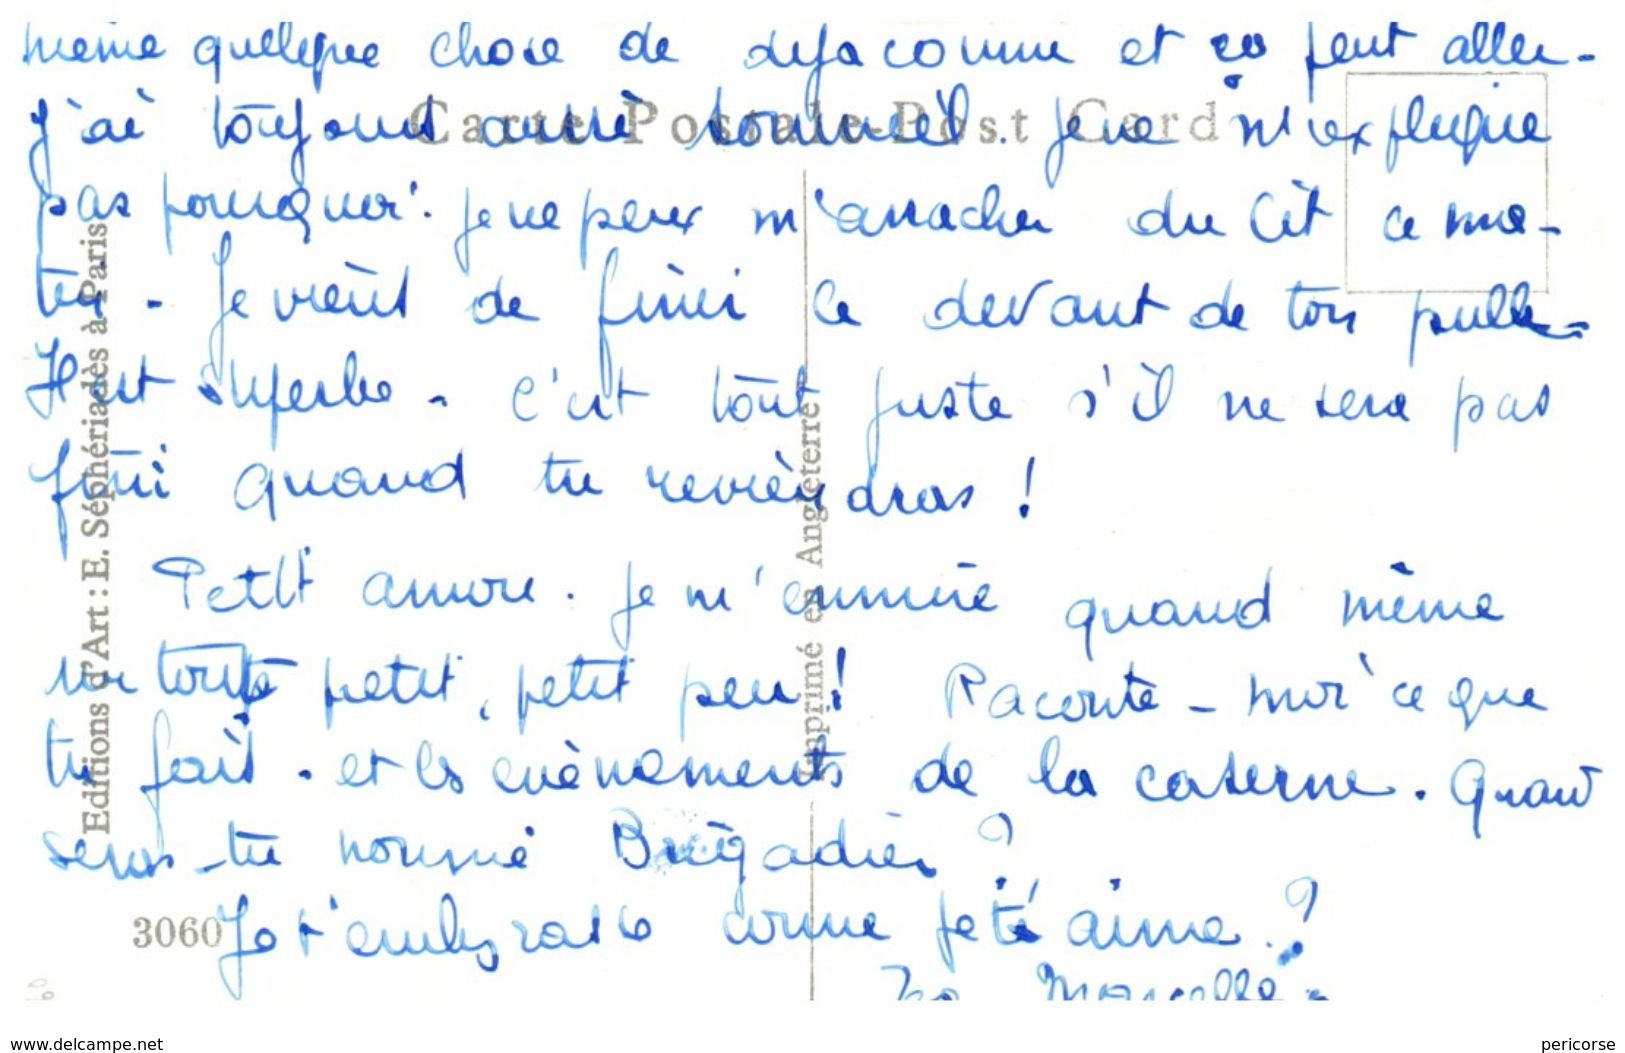 même quelque chose de déjà connu et ça peut aller -
Carte Postale - Post Card
j'ai toujours aussi sommeil. je ne m'explique
pas pourquoi. je ne peux m'arracher du lit ce ma-
tin - Je viens de finir le devant de ton pull -
Il est superbe - C'est tout juste s'il ne sera pas
fini quand tu reviendras !
Petit amour. je m'ennuie quand même
un tout petit, petit peu ! Raconte - moi ce que
tu fais - et les evènements de la caserne. Quand
seras - tu nommé Brigadier ?
Je t'embrasse comme je t'aime. ?
Marcelle -
3060
Editions d'Art : E. Séphériadès à Paris
Imprimé en Angleterre
www.delcampe.net
pericorse